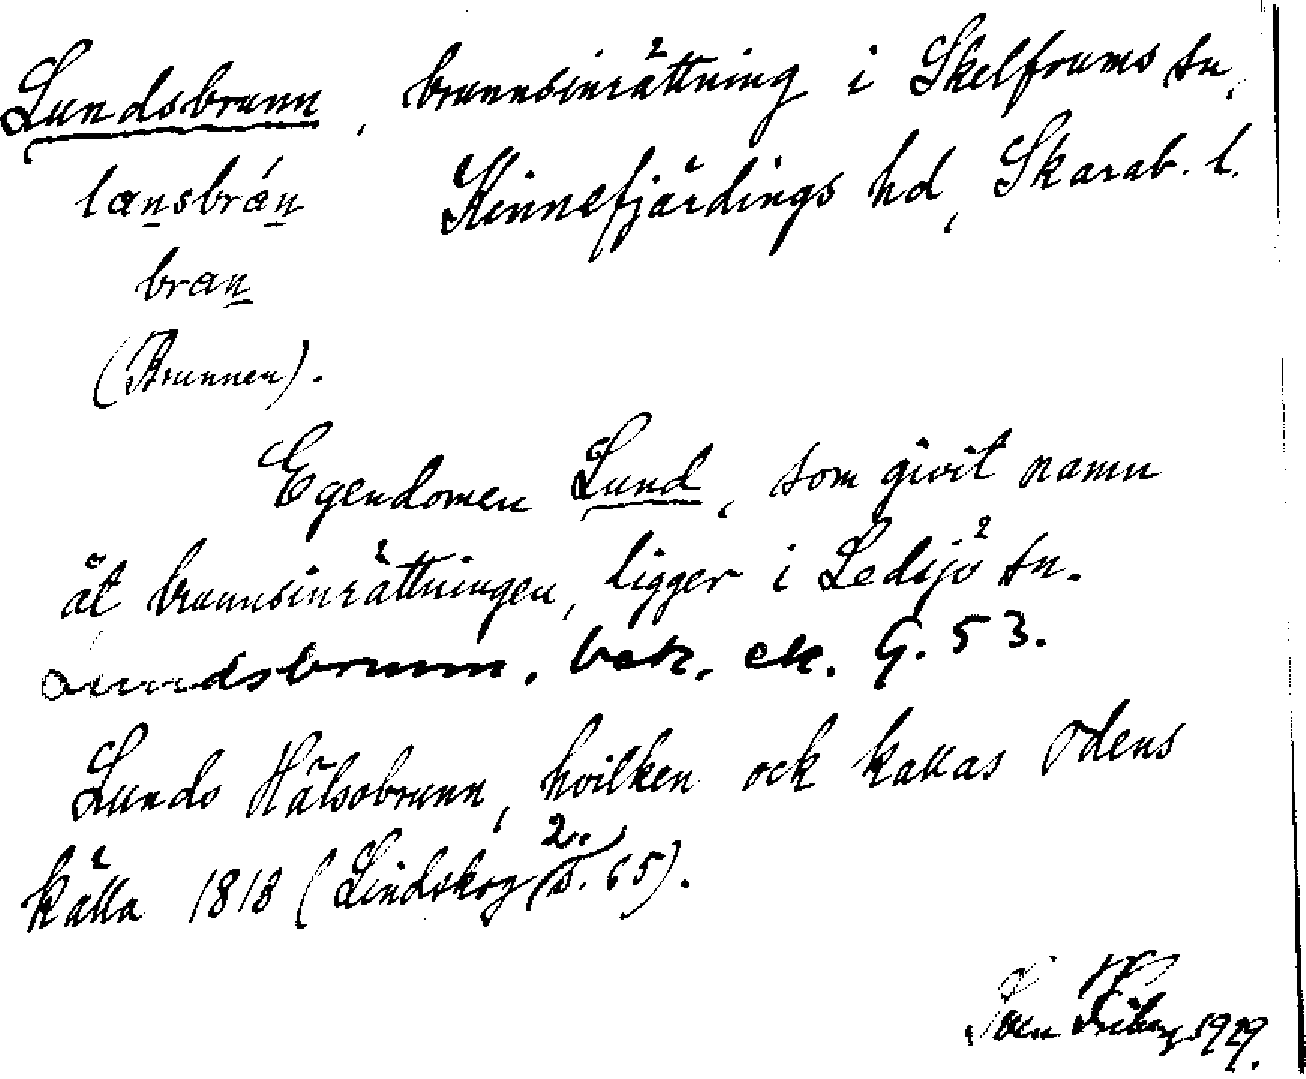 Lundsbrunn, brunnsinrättning i Skelfvums sn,
lansbrán Kinnefjärdings hd, Skarab. l.
bran
(Brunnen).
Egendomen Lund, som givit namn
åt brunnsinrättningen, ligger i Ledsjö sn.
Lundsbrunn. bek. ek. G. 53.
Lunds Hälsobrunn, hvilken ock kallas Odens
källa 1813 (Lindskog 2. s. 65).
Sven 1929.